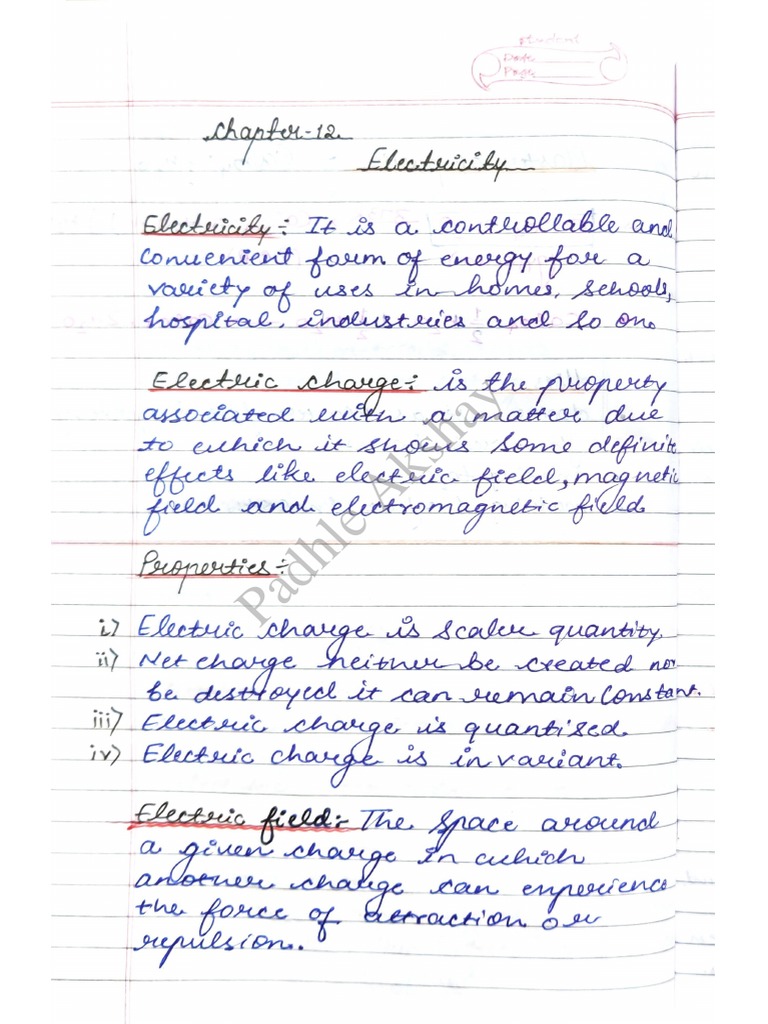 student
Date
Page
Chapter-12
Electricity
Electricity:- It is a controllable and
convenient form of energy for a
variety of uses in homes, schools,
hospital, industries and so on.
Electric charge:- is the property
associated with a matter due
to which it shows some definite
effects like electric field, magnetic
field and electromagnetic field.
Properties:-
i) Electric charge is scaler quantity.
ii) Net charge neither be created nor
be destroyed it can remain constant.
iii) Electric charge is quantised.
iv) Electric charge is invariant.
Electric field:- The space around
a given charge in which
another charge can experience
the force of attraction or
repulsion.
Padhle Akshay